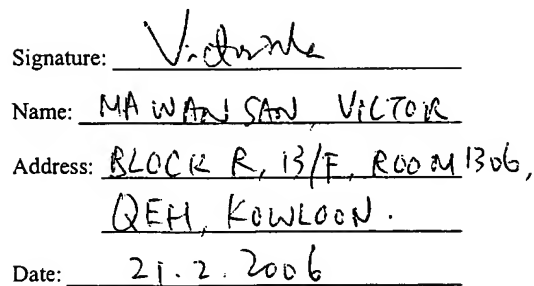 Signature:
Name: MA WAN SAN, VICTOR
Address: BLOCK R, 13/F, ROOM 1306,
QEH, KOWLOON.
Date: 21.2.2006